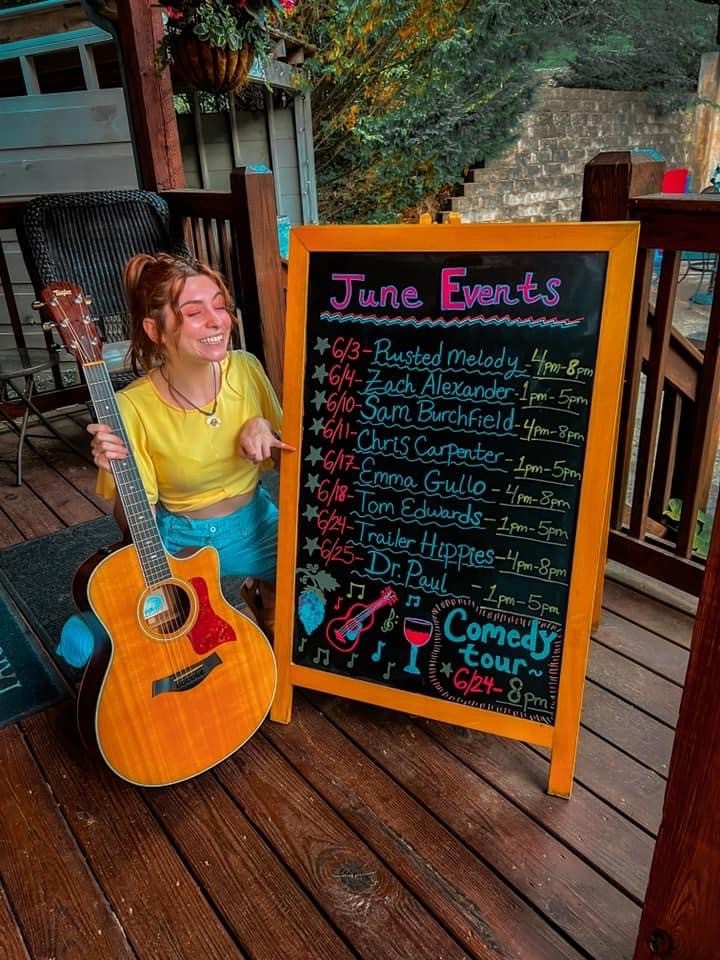 Taylor
June Events
6/3 - Rusted Melody - 4pm-8pm
6/4 - Zach Alexander - 1pm-5pm
6/10 - Sam Burchfield - 4pm-8pm
6/11 - Chris Carpenter - 1pm-5pm
6/17 - Emma Gullo - 4pm-8pm
6/18 - Tom Edwards - 1pm-5pm
6/24 - Trailer Hippies - 4pm-8pm
6/25 - Dr. Paul - 1pm-5pm
Comedy
tour~
6/24 - 8pm